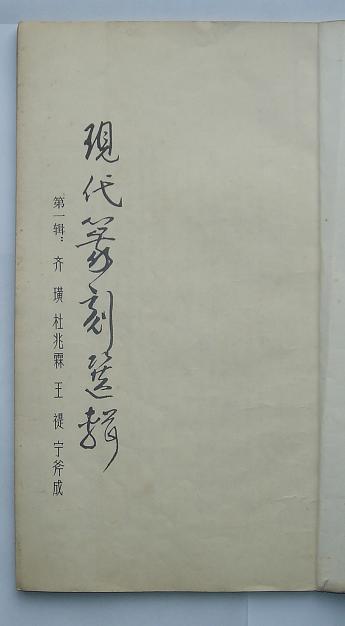 現代篆刻選輯
第一辑：齐 璜 杜兆霖 王 禔 宁斧成